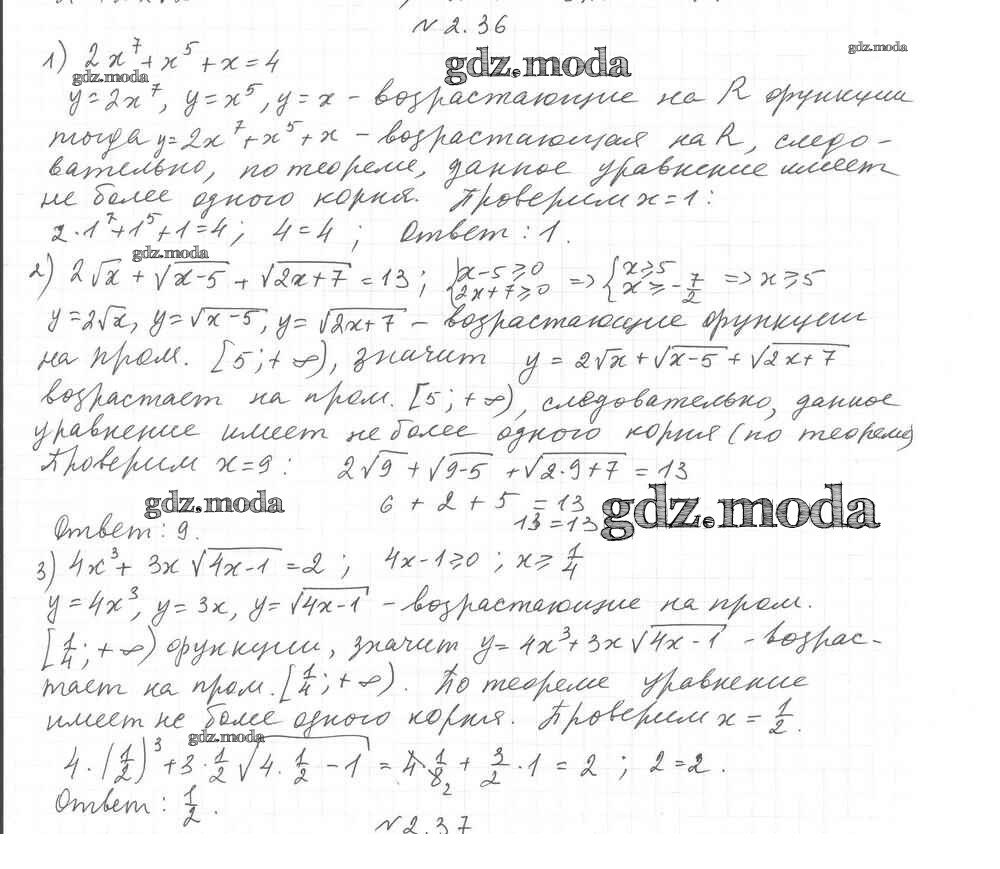 № 2.36
1) 2x⁷ + x⁵ + x = 4
y = 2x⁷, y = x⁵, y = x – возрастающие на R функции
тогда y = 2x⁷ + x⁵ + x – возрастающая на R, следо-
вательно, по теореме, данное уравнение имеет
не более одного корня. Проверим x = 1:
2·1⁷ + 1⁵ + 1 = 4; 4 = 4; Ответ: 1.
2) 2√x + √(x-5) + √(2x+7) = 13; {x-5≥0 2x+7≥0 => {x≥5 x≥-7/2 => x≥5
y = 2√x, y = √(x-5), y = √(2x+7) – возрастающие функции
на пром. [5; +∞), значит y = 2√x + √(x-5) + √(2x+7)
возрастает на пром. [5; +∞), следовательно, данное
уравнение имеет не более одного корня (по теореме)
Проверим x = 9: 2√9 + √(9-5) + √(2·9+7) = 13
6 + 2 + 5 = 13
13 = 13
Ответ: 9.
3) 4x³ + 3x√(4x-1) = 2; 4x-1≥0; x≥1/4
y = 4x³, y = 3x, y = √(4x-1) – возрастающие на пром.
[1/4; +∞) функции, значит y = 4x³ + 3x√(4x-1) – возрас-
тает на пром. [1/4; +∞). По теореме уравнение
имеет не более одного корня. Проверим x = 1/2.
4·(1/2)³ + 3·1/2√(4·1/2 - 1) = 4·1/8₂ + 3/2·1 = 2; 2 = 2.
Ответ: 1/2.
№ 2.37
gdz.moda
gdz.moda
gdz.moda
gdz.moda
gdz.moda
gdz.moda
gdz.moda